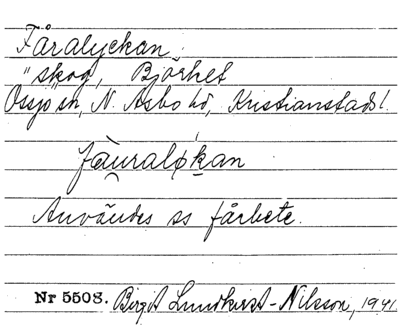 Fåralyckan.
"skog, Björket
Össjö sn, N. Åsbo hd, Kristianstads l.
fäuraløkan
Användes ss fårbete.
Nr 5508. Birgit Lundkvist-Nilsson, 1941